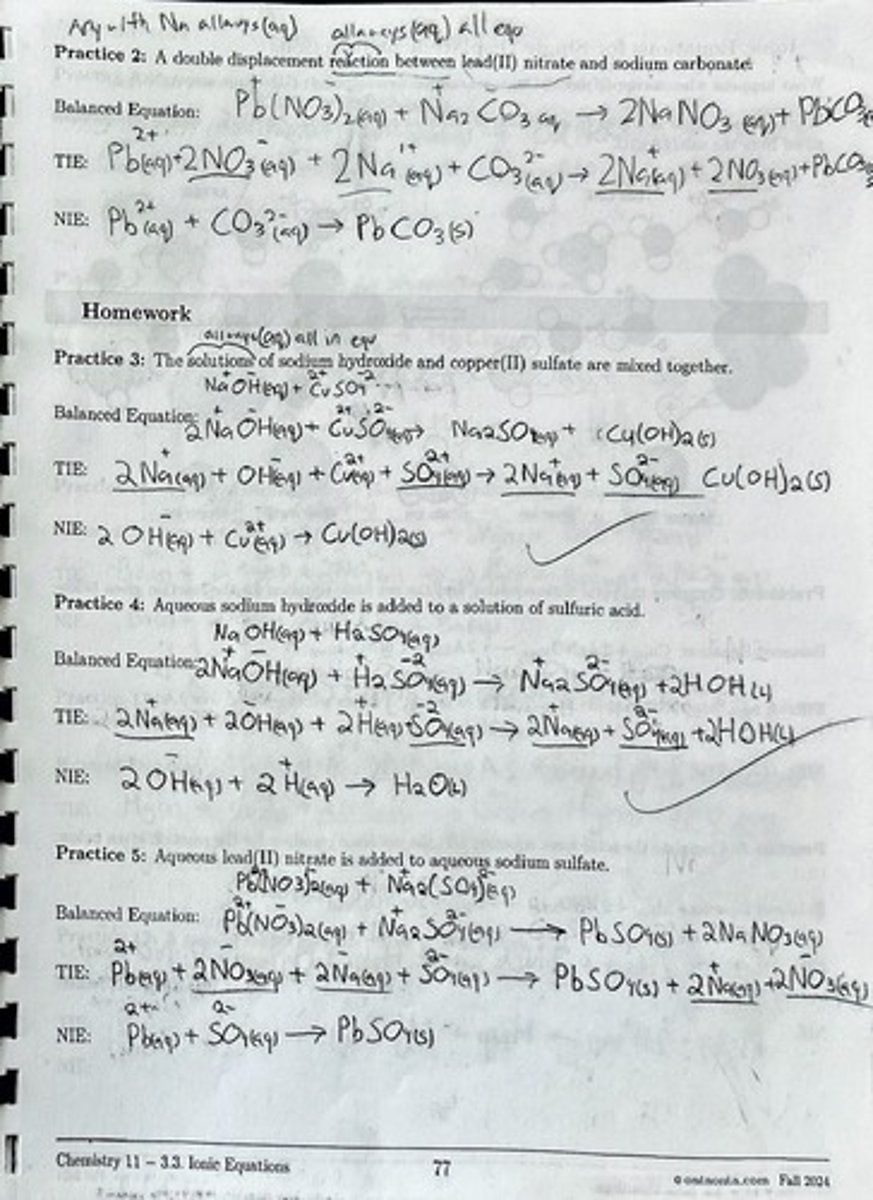 Any with Na always (aq) always (aq) all equ
Practice 2: A double displacement reaction between lead(II) nitrate and sodium carbonate.
Balanced Equation: Pb(NO₃)₂(aq) + Na₂CO₃ aq → 2NaNO₃(aq) + PbCO₃
TIE: Pb²⁺(aq) + 2NO₃⁻(aq) + 2Na¹⁺(aq) + CO₃²⁻(aq) → 2Na⁺(aq) + 2NO₃(aq) + PbCO₃
NIE: Pb²⁺(aq) + CO₃²⁻(aq) → PbCO₃(s)
Homework
always(aq) all in equ
Practice 3: The solutions of sodium hydroxide and copper(II) sulfate are mixed together.
Na⁺OH⁻(aq) + Cu²⁺SO₄⁻²
Balanced Equation: 2Na⁺OH⁻(aq) + Cu²⁺SO₄²⁻(aq) → Na₂SO₄(aq) + Cu(OH)₂(s)
TIE: 2Na⁺(aq) + OH⁻(aq) + Cu²⁺(aq) + SO₄²⁺(aq) → 2Na⁺(aq) + SO₄²⁻(aq) Cu(OH)₂(s)
NIE: 2OH⁻(aq) + Cu²⁺(aq) → Cu(OH)₂(s)
Practice 4: Aqueous sodium hydroxide is added to a solution of sulfuric acid.
NaOH(aq) + H₂SO₄(aq)
Balanced Equation: 2Na⁺OH⁻(aq) + H⁺₂SO₄⁻²(aq) → Na⁺₂SO₄²⁻(aq) + 2HOH(l)
TIE: 2Na⁺(aq) + 2OH⁻(aq) + 2H⁺(aq) + SO₄⁻²(aq) → 2Na⁺(aq) + SO₄²⁻(aq) + 2HOH(l)
NIE: 2OH⁻(aq) + 2H⁺(aq) → H₂O(l)
Practice 5: Aqueous lead(II) nitrate is added to aqueous sodium sulfate.
Pb(NO₃)₂(aq) + Na₂(SO₄)(aq)
Balanced Equation: Pb²⁺(NO₃⁻)₂(aq) + Na⁺₂SO₄²⁻(aq) → PbSO₄(s) + 2NaNO₃(aq)
TIE: Pb²⁺(aq) + 2NO₃⁻(aq) + 2Na⁺(aq) + SO₄²⁻(aq) → PbSO₄(s) + 2Na⁺(aq) + 2NO₃⁻(aq)
NIE: Pb²⁺(aq) + SO₄²⁻(aq) → PbSO₄(s)
Chemistry 11 – 3.3. Ionic Equations 77 Fall 2024